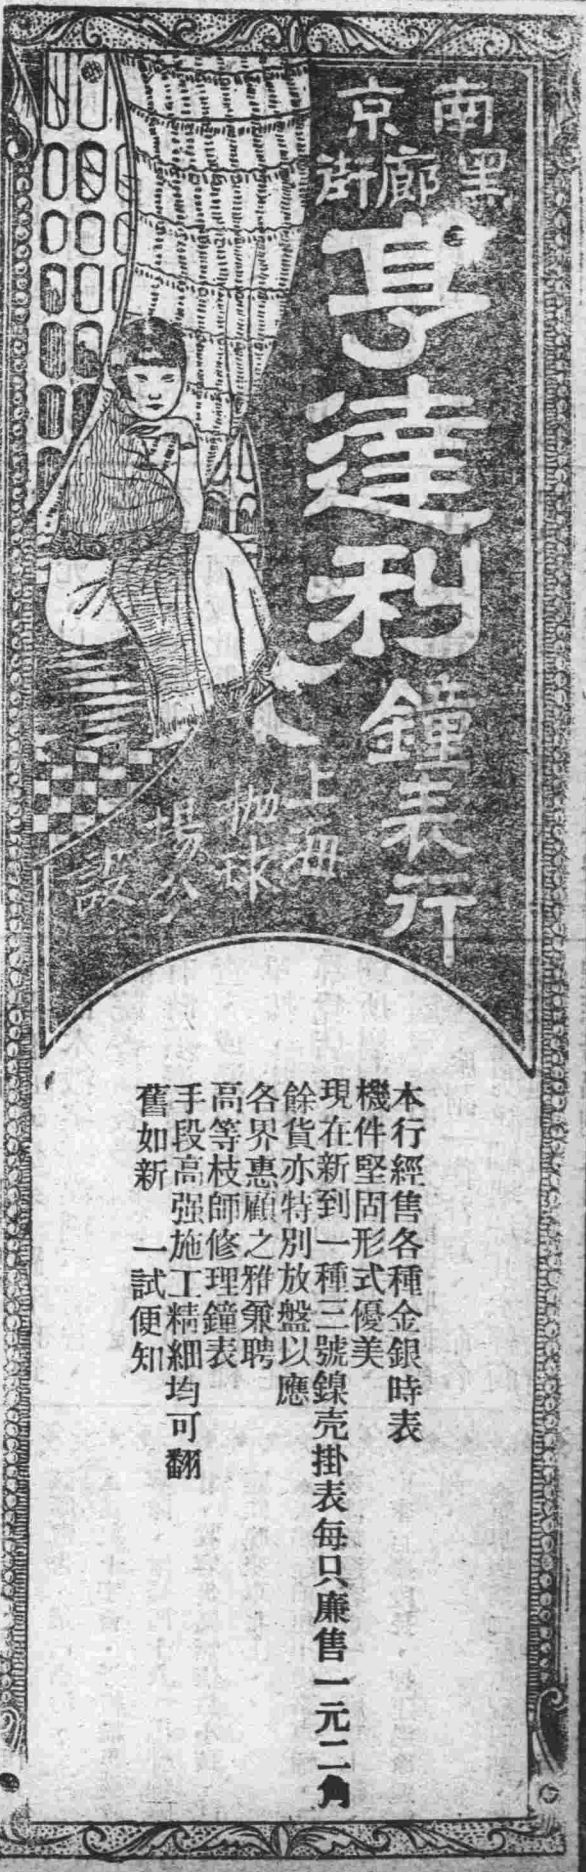 南京
黑廊街
亨達利
鐘表行
上海
抛球
場分
設
本行經售各種金銀時表
機件堅固形式優美
現在新到一種三號鎳壳掛表每只廉售一元二角
餘貨亦特別放盤以應
各界惠顧之雅兼聘
高等枝師修理鐘表
手段高强施工精細均可翻
舊如新 一試便知